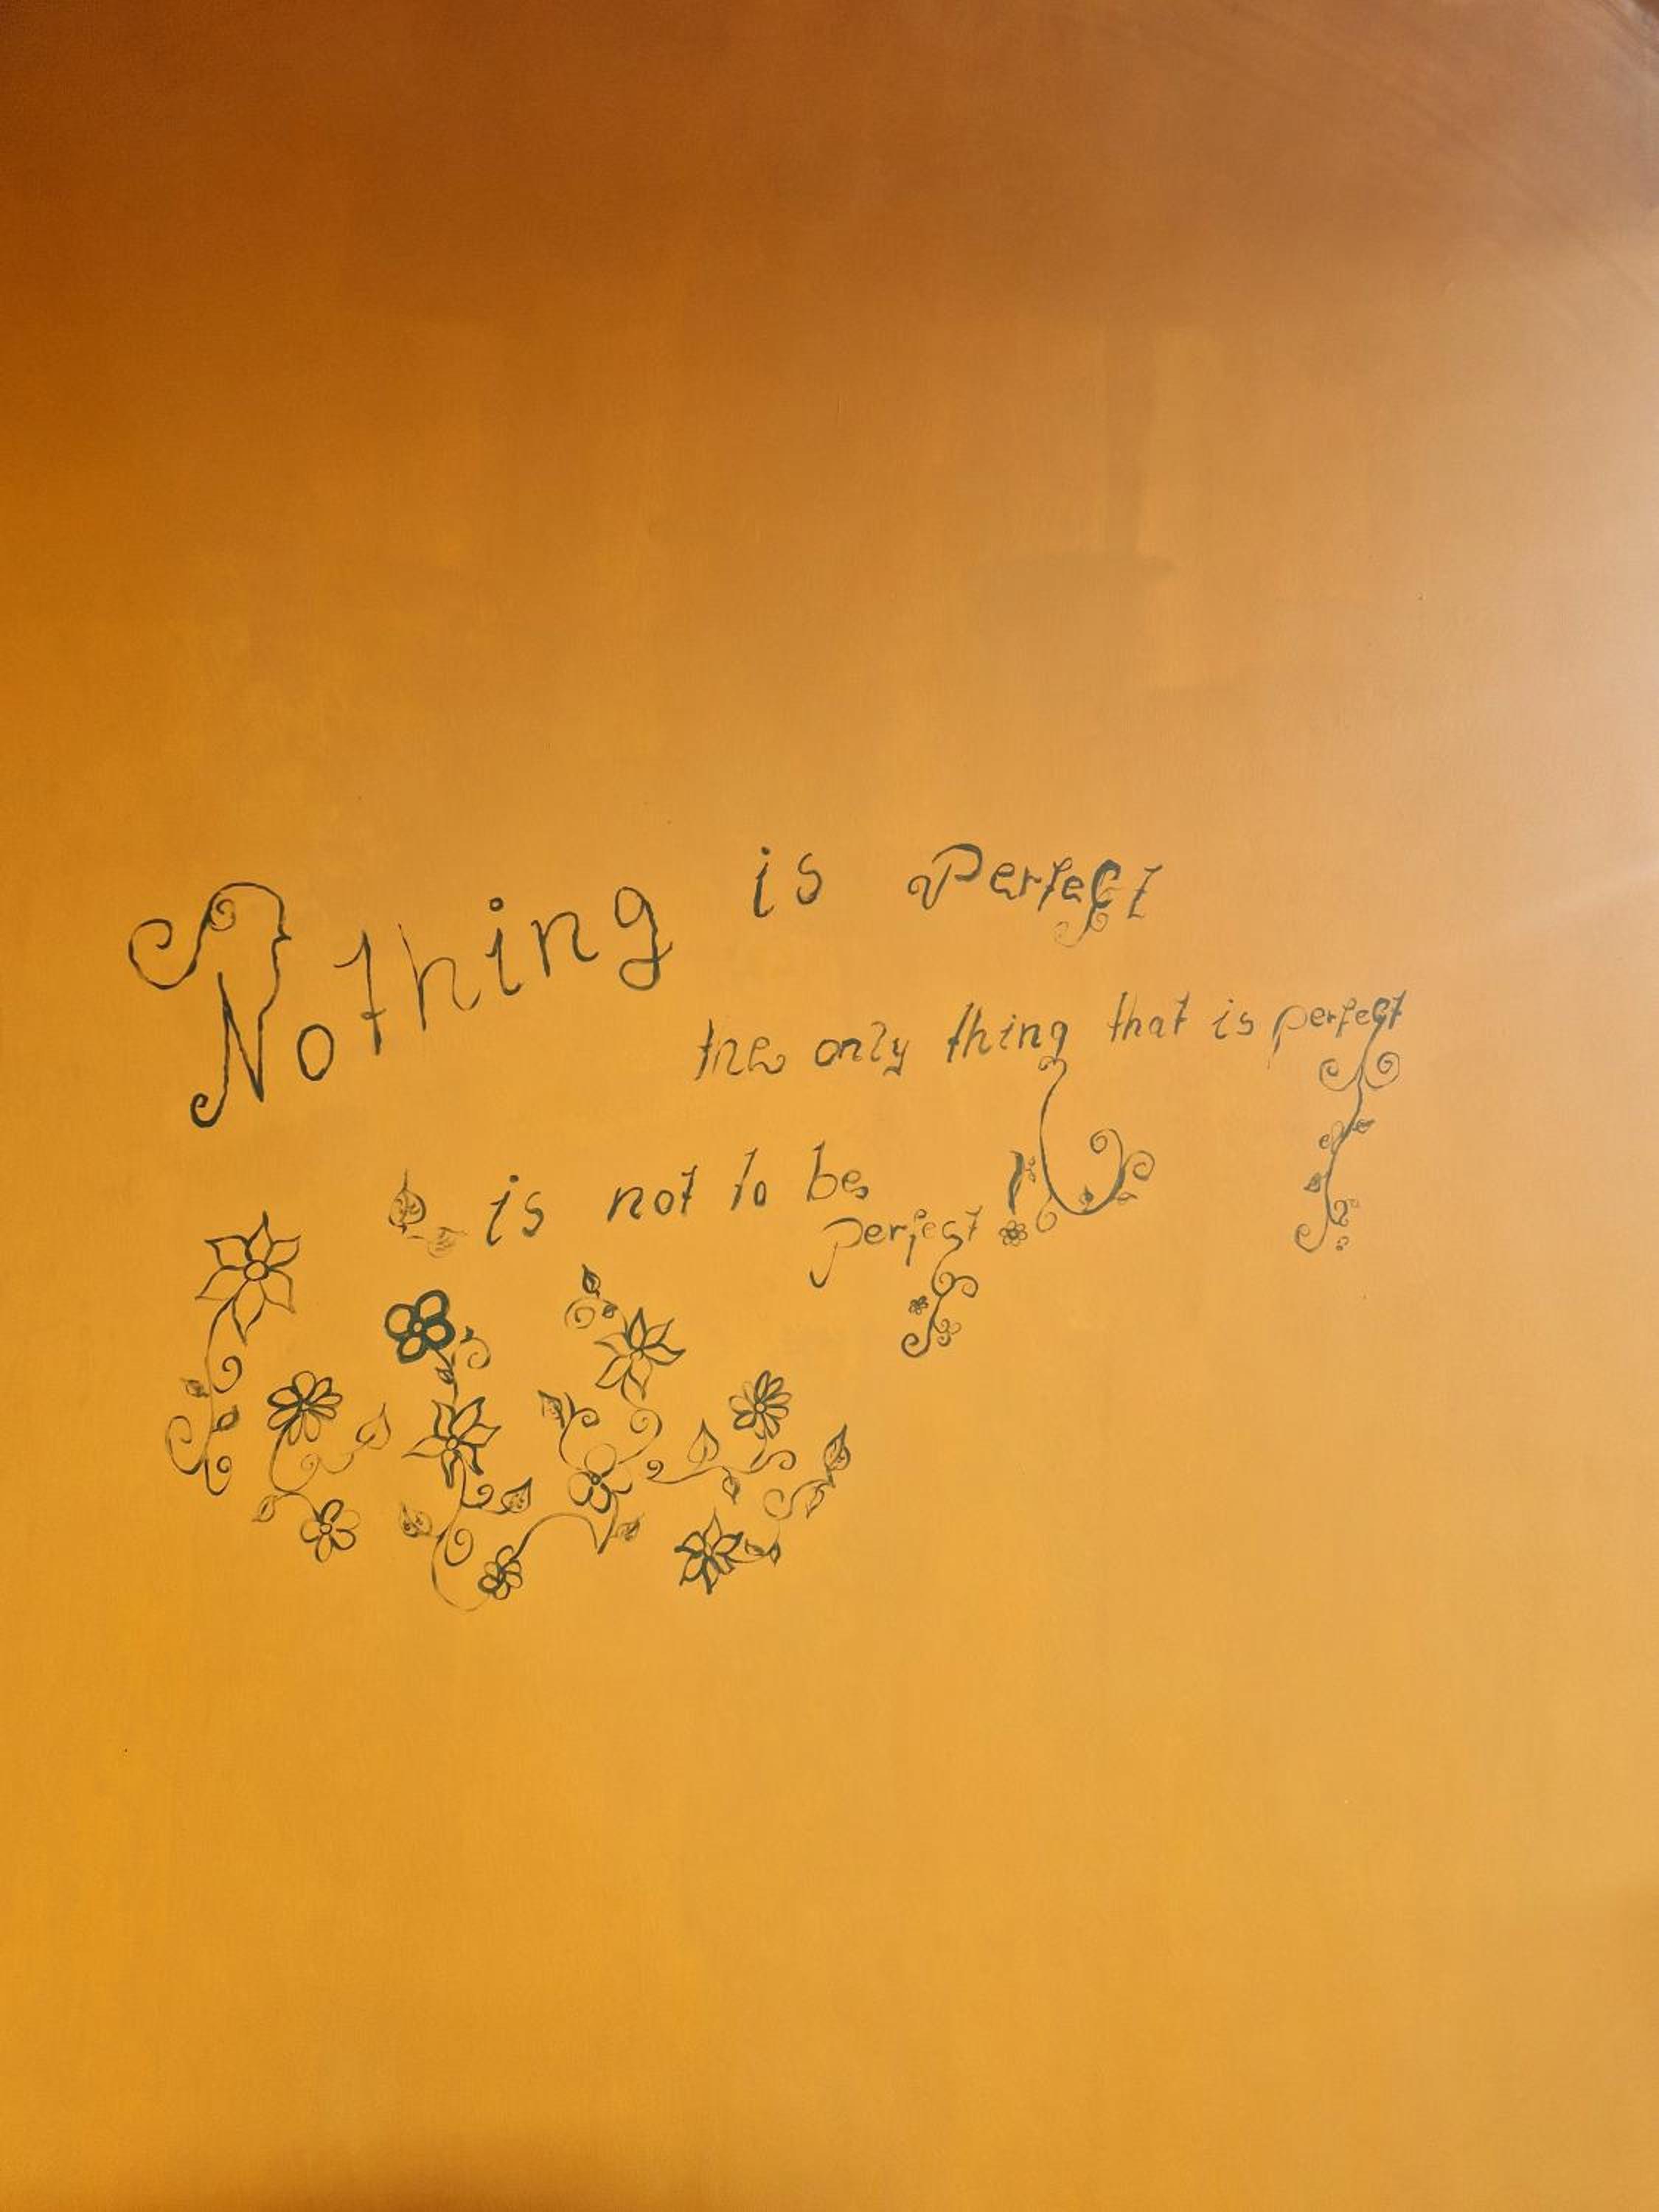 Nothing is Perfect
the only thing that is perfect
is not to be
perfect